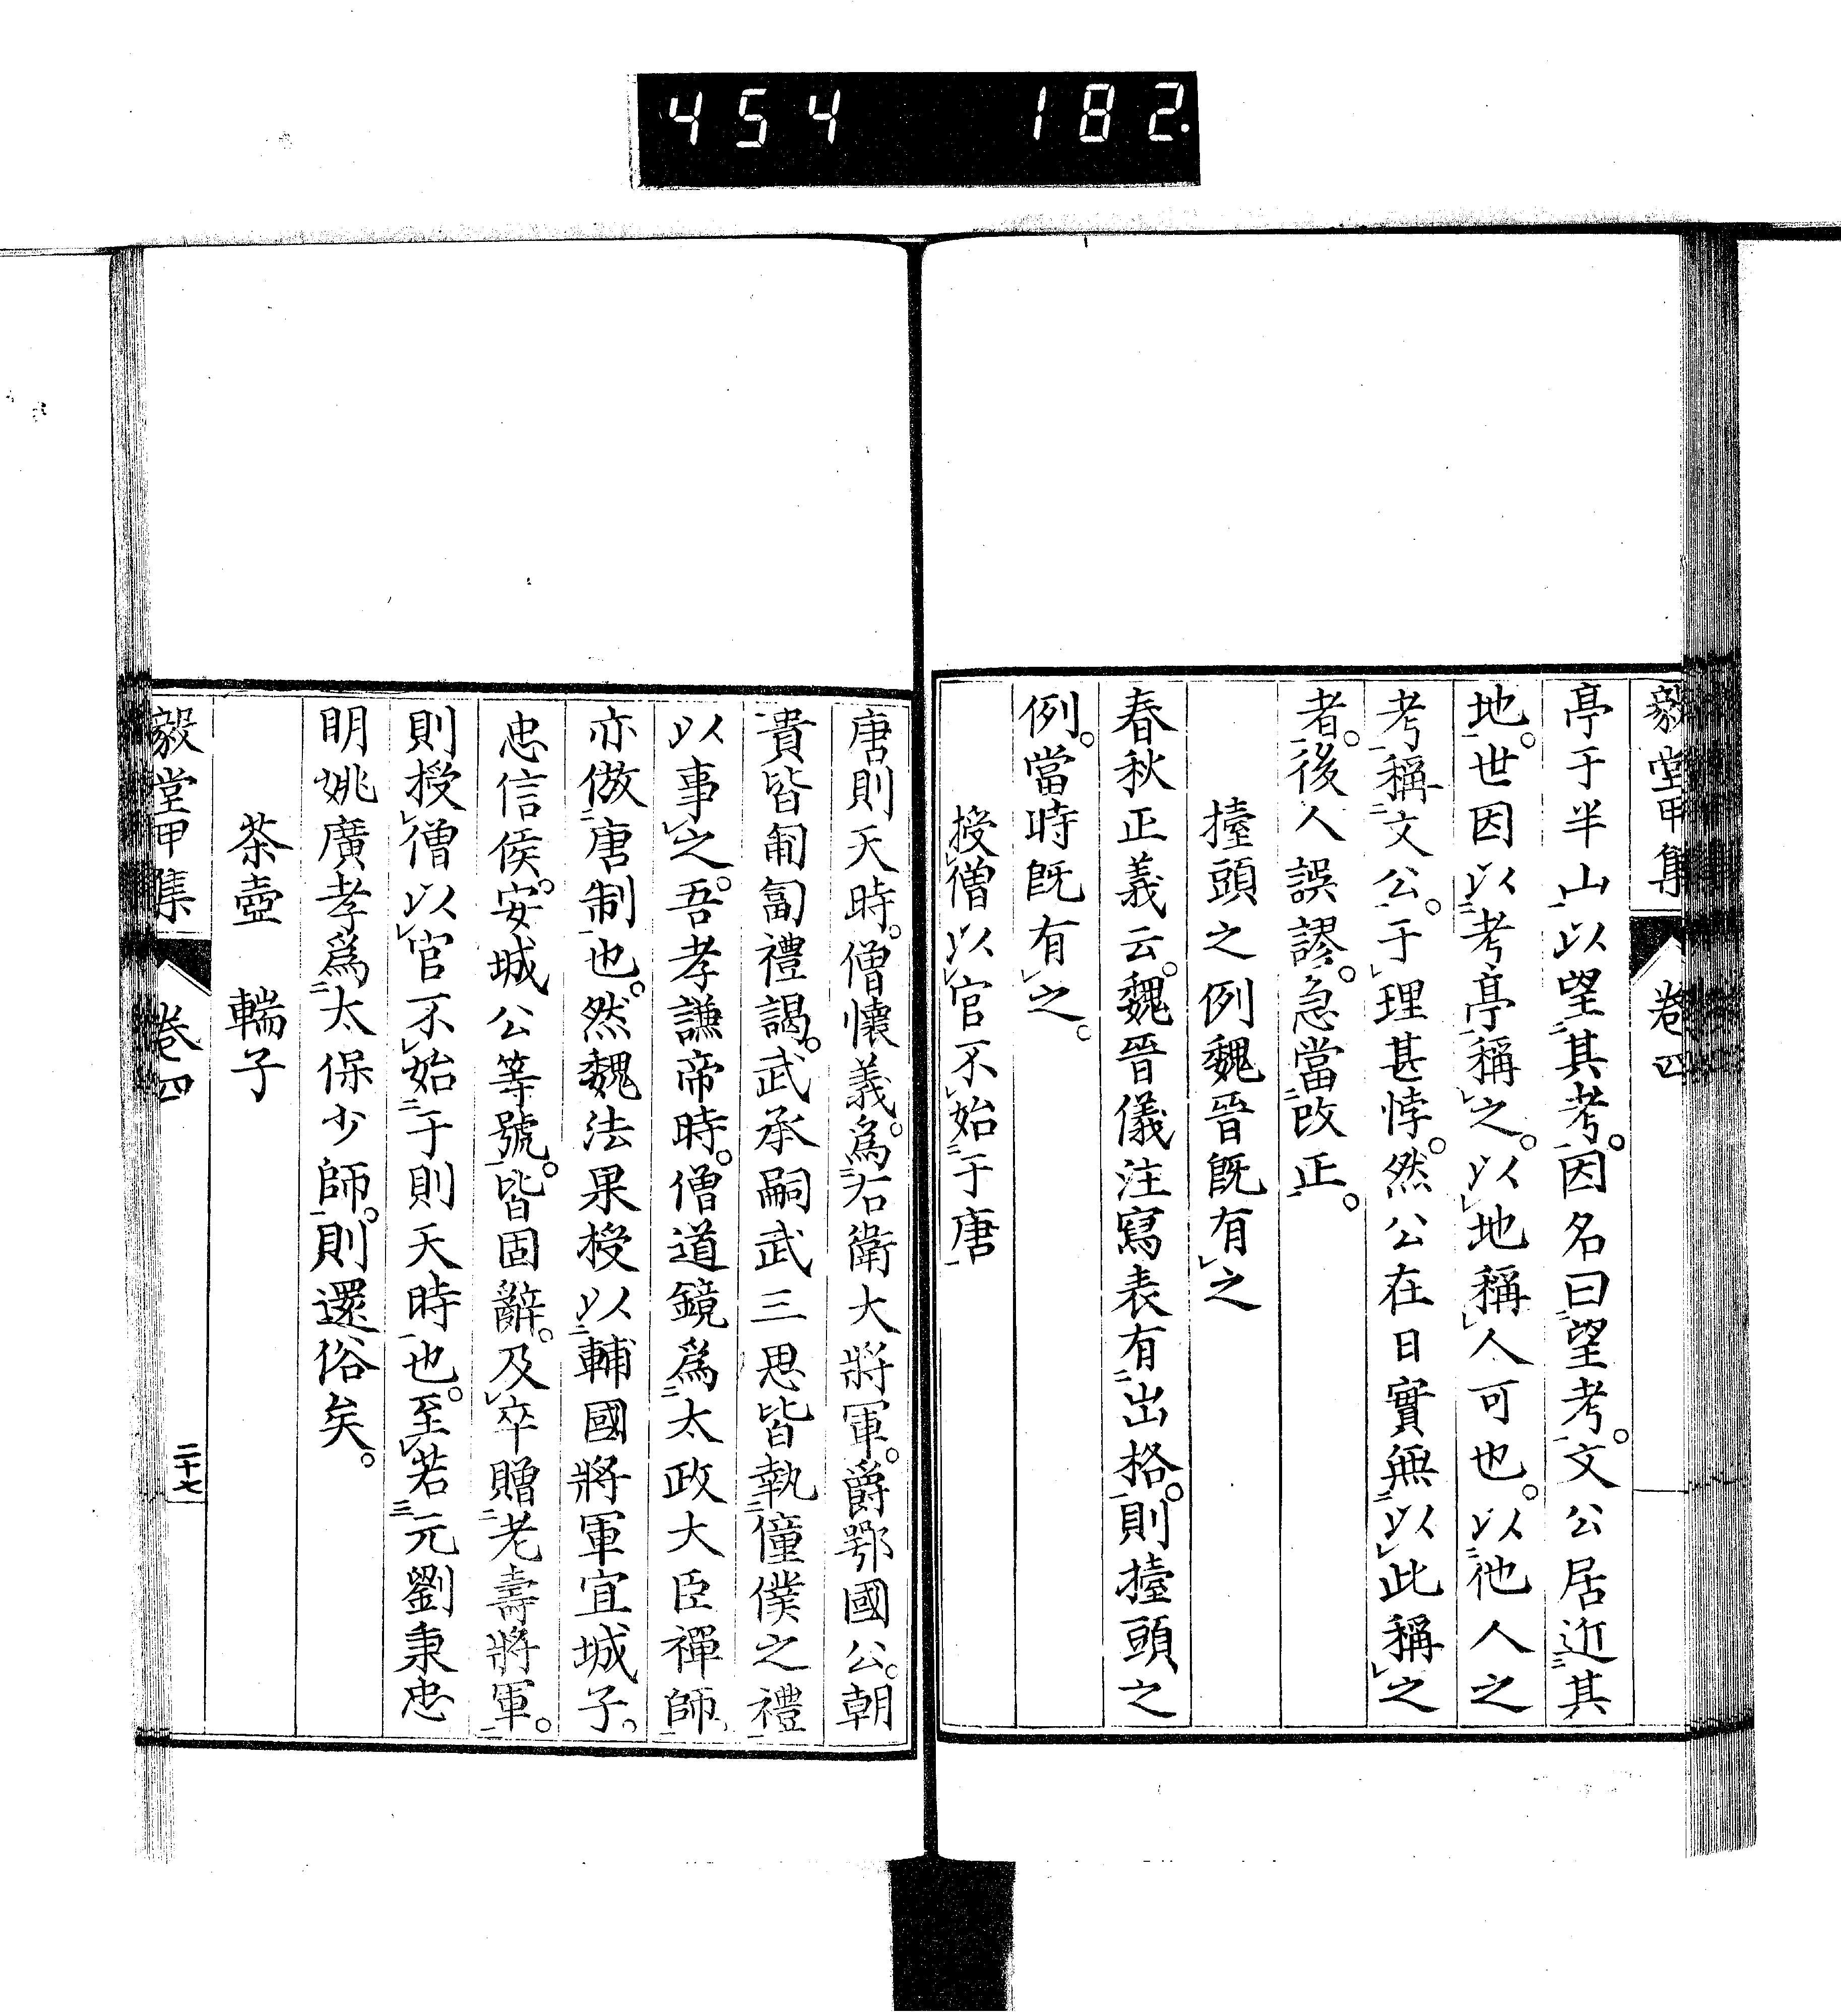 454 182.
毅堂甲集 卷四
亭于半山以望其考。因名曰望考。文公居近其
地。世因以考亭稱之。以地稱人可也。以他人之
考稱文公。于理甚悖。然公在日實無以此稱之
者。後人誤謬。急當改正。
擡頭之例魏晉既有之
春秋正義云。魏晉儀注寫表有出格。則擡頭之
例。當時既有之。
授僧以官不始于唐
唐則天時。僧懷義。為右衛大將軍。爵鄂國公。朝
貴皆匍匐禮謁。武承嗣武三思皆執僮僕之禮
以事之。吾孝謙帝時。僧道鏡為太政大臣禪師。
亦倣唐制也。然魏法果授以輔國將軍宜城子。
忠信侯。安城公等號。皆固辭。及卒贈老壽將軍。
則授僧以官不始于則天時也。至若元劉秉忠
明姚廣孝為太保少師。則還俗矣。
茶壺 轜子
毅堂甲集 卷四 二十七